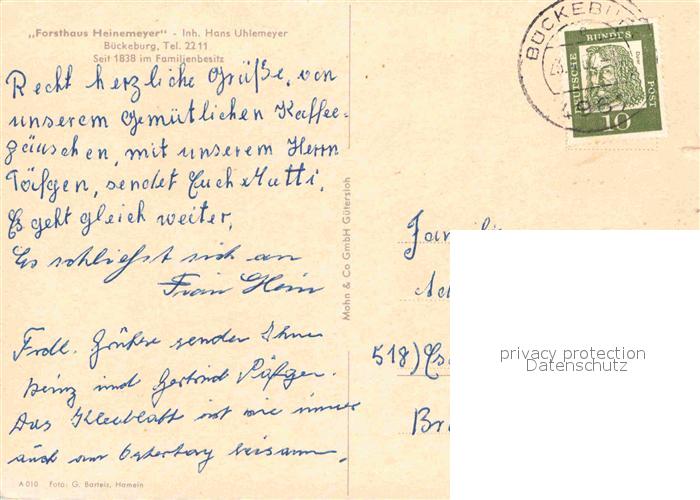 „Forsthaus Heinemeyer" - Inh. Hans Uhlemeyer
Bückeburg, Tel. 2211
Seit 1838 im Familienbesitz
Recht herzliche Grüße, von
unserem gemütlichen Kaffee-
päuschen, mit unserem Herrn
Töpfgen, sendet Euch Mutti.
Es geht gleich weiter,
Es schließt sich an
Frau Hein
Frdl. Grüße senden Ihnen
Heinz und Gertrud
Das Kleeblatt ist wie immer
auch am Ostertag beisamm.
A 010 Foto: G. Barteis, Hameln
Mohn & Co GmbH Gütersloh
BÜCKEBURG
DEUTSCHE BUNDES POST
Dürer
10
Familie
518) Es
Br
privacy protection
Datenschutz